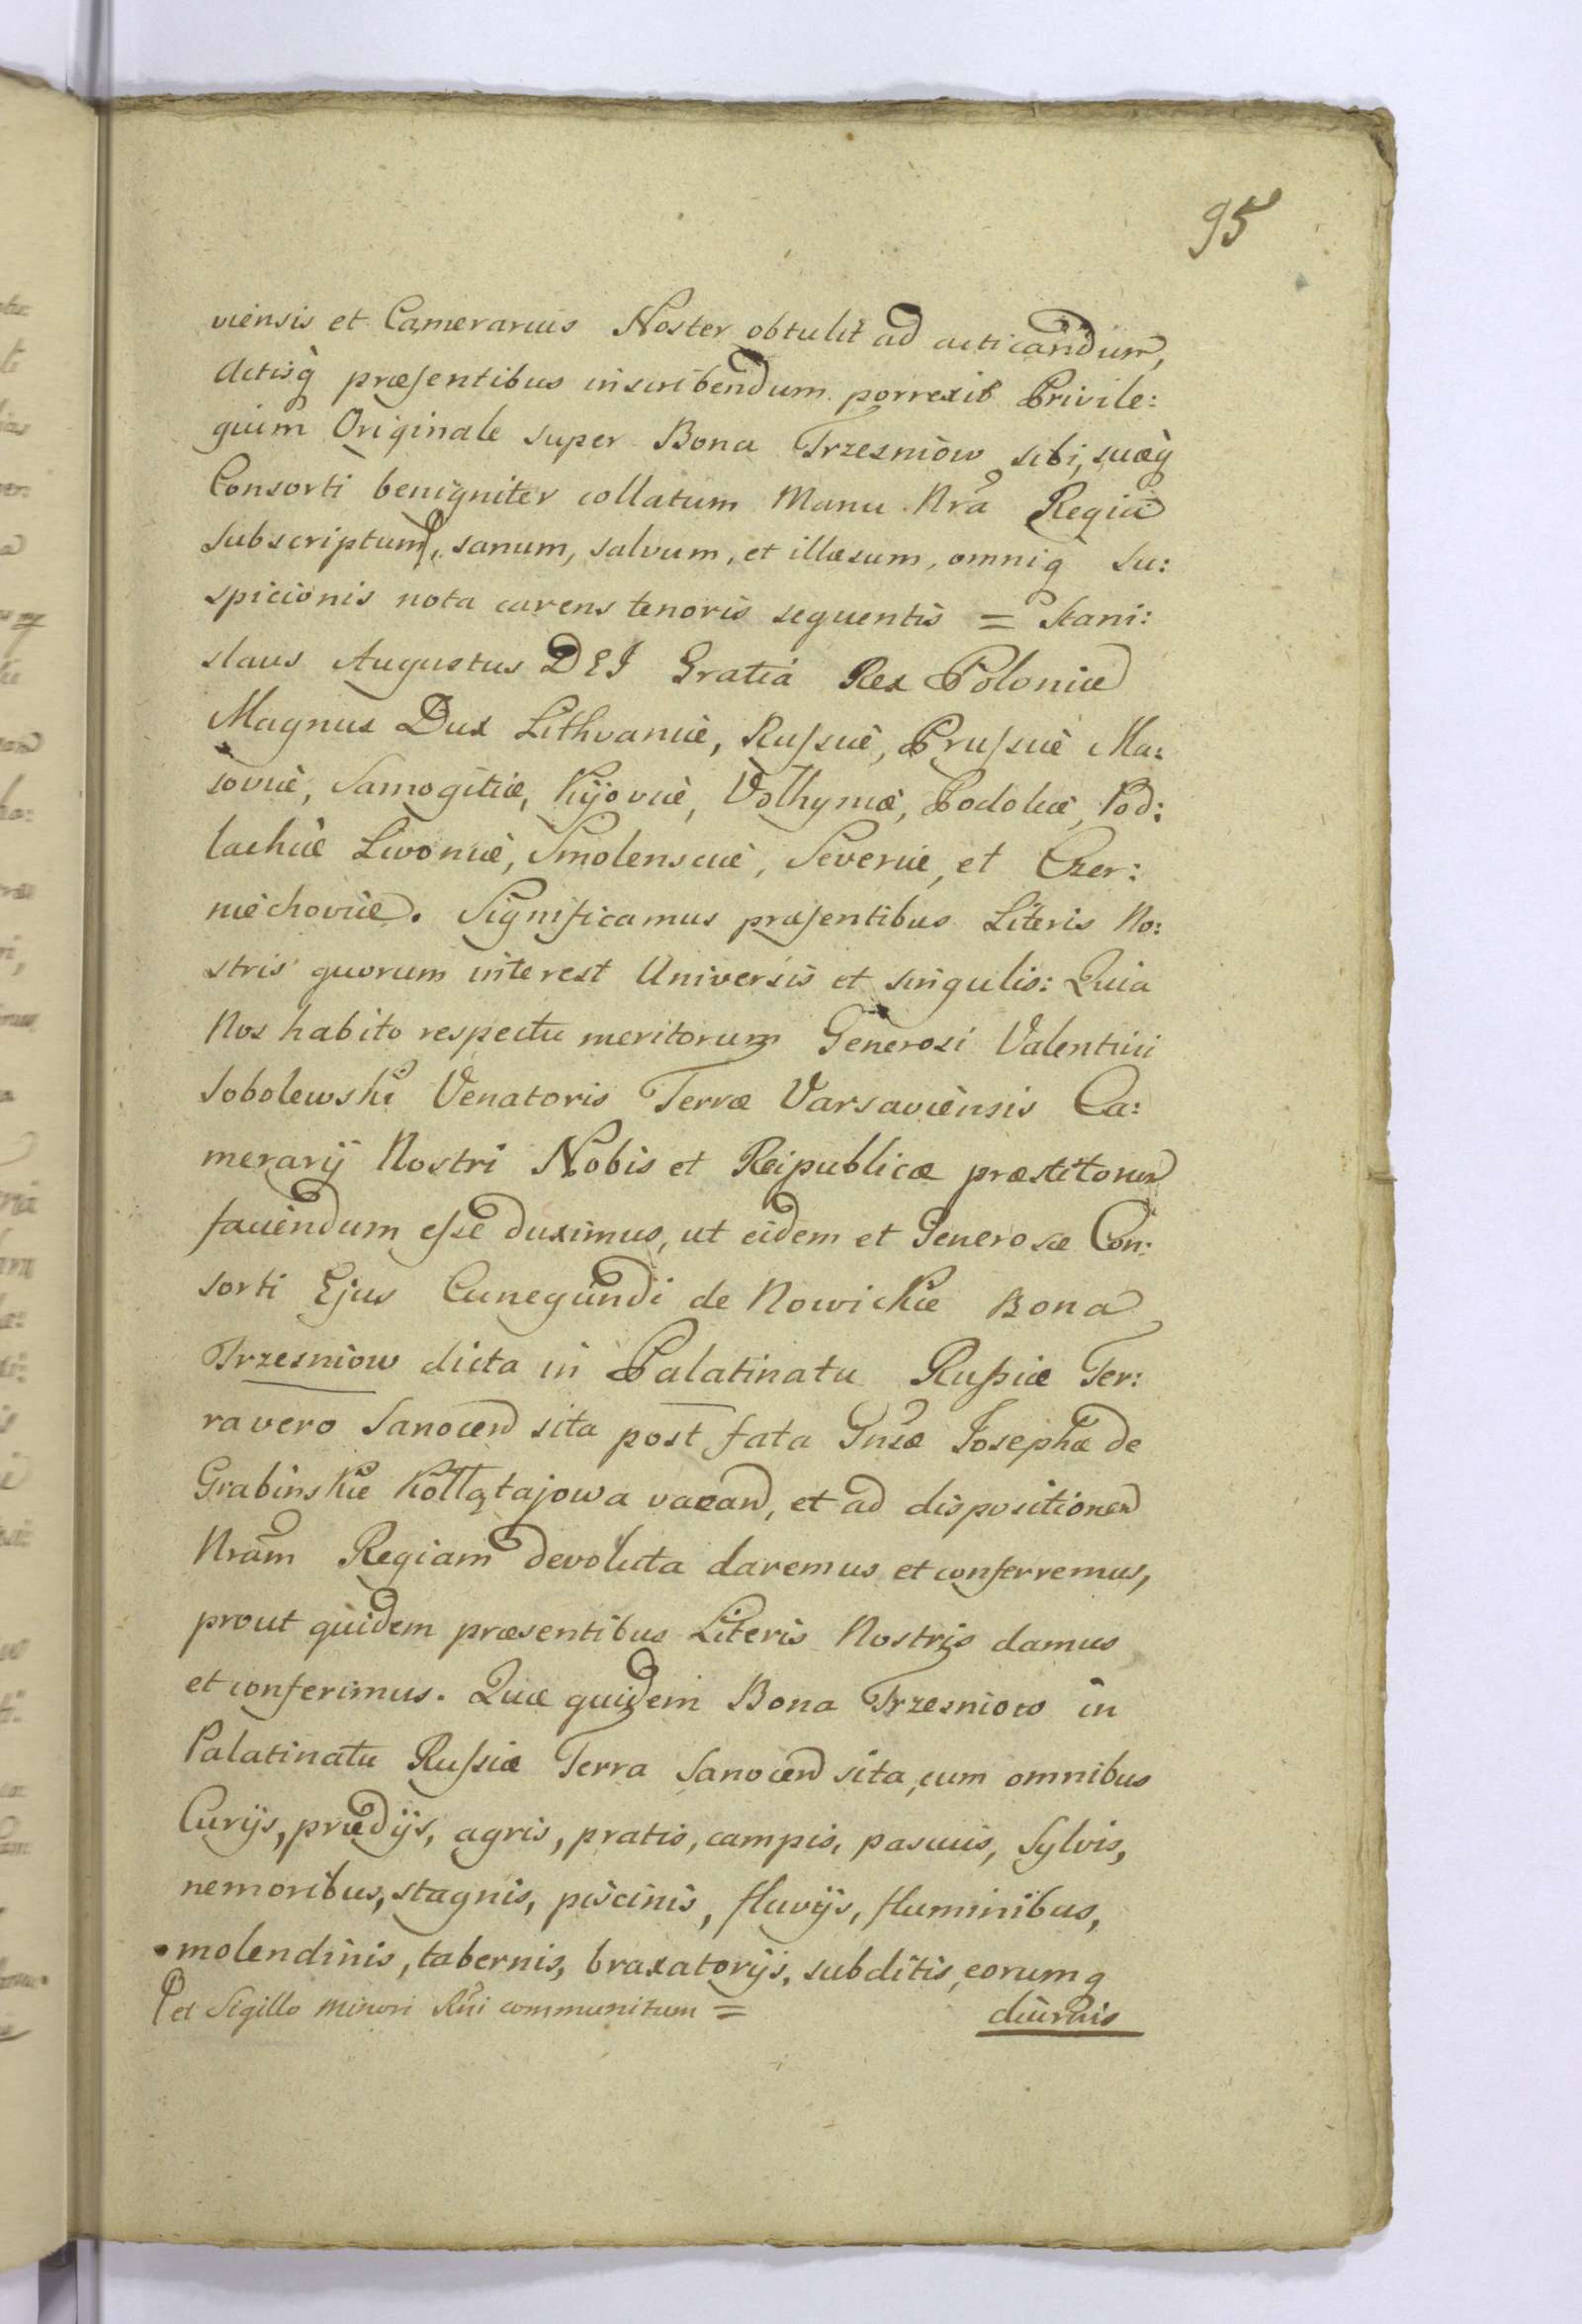 95
viensis et Camerarius Noster obtulit ad acticandum,
Actisq́ præsentibus inscribendum porrexit Privile:
gium Originale super Bona Trzesniow sibi, suæq́
Consorti benigniter collatum Manu Nrã Regia
Subscriptum, sanum, salvum, et illæsum, omniq́ su:
spicionis nota carens tenoris sequentis = Stani:
slaus Augustus DEI Gratiá Rex Poloniæ
Magnus Dux Lithvaniæ, Russiæ, Prussiæ Ma:
soviæ, Samogitiæ, Kijoviæ, Volhyniæ, Podoliæ, Pod:
lachiæ Livoniæ, Smolensciæ, Severiæ, et Czer:
niechoviæ. Significamus præsentibus Literis No:
stris quorum interest Universis et singulis: Quia
Nos habito respectu meritorum Generosi Valentini
Sobolewski Venatoris Terræ Varsaviensis Ca:
merarij Nostri Nobis et Reipublicæ præstitorum
faciendum esse duximus, ut eidem et Generosæ Con:
sorti Ejus Cunegundi de Nowickie Bona
Trzesniow dicta in Palatinatu Russiæ Ter:
ra vero Sanocen sita post fata Gnsæ Josephæ de
Grabinskie Kołłątajowa vacan, et ad dispositionem
Nram Regiam devoluta daremus et conferremus,
prout quidem præsentibus Literis Nostris damus
et conferimus. Quæ quidem Bona Trzesniow in
Palatinatu Russiæ Terra Sanocen sita, cum omnibus
Curijs, prædijs, agris, pratis, campis, pascuis, Sylvis,
nemoribus, stagnis, piscinis, fluvijs, fluminibus,
molendinis, tabernis, braxatorijs, subditis, eorumq
et Sigillo minori Rñi communitum =
diurnis